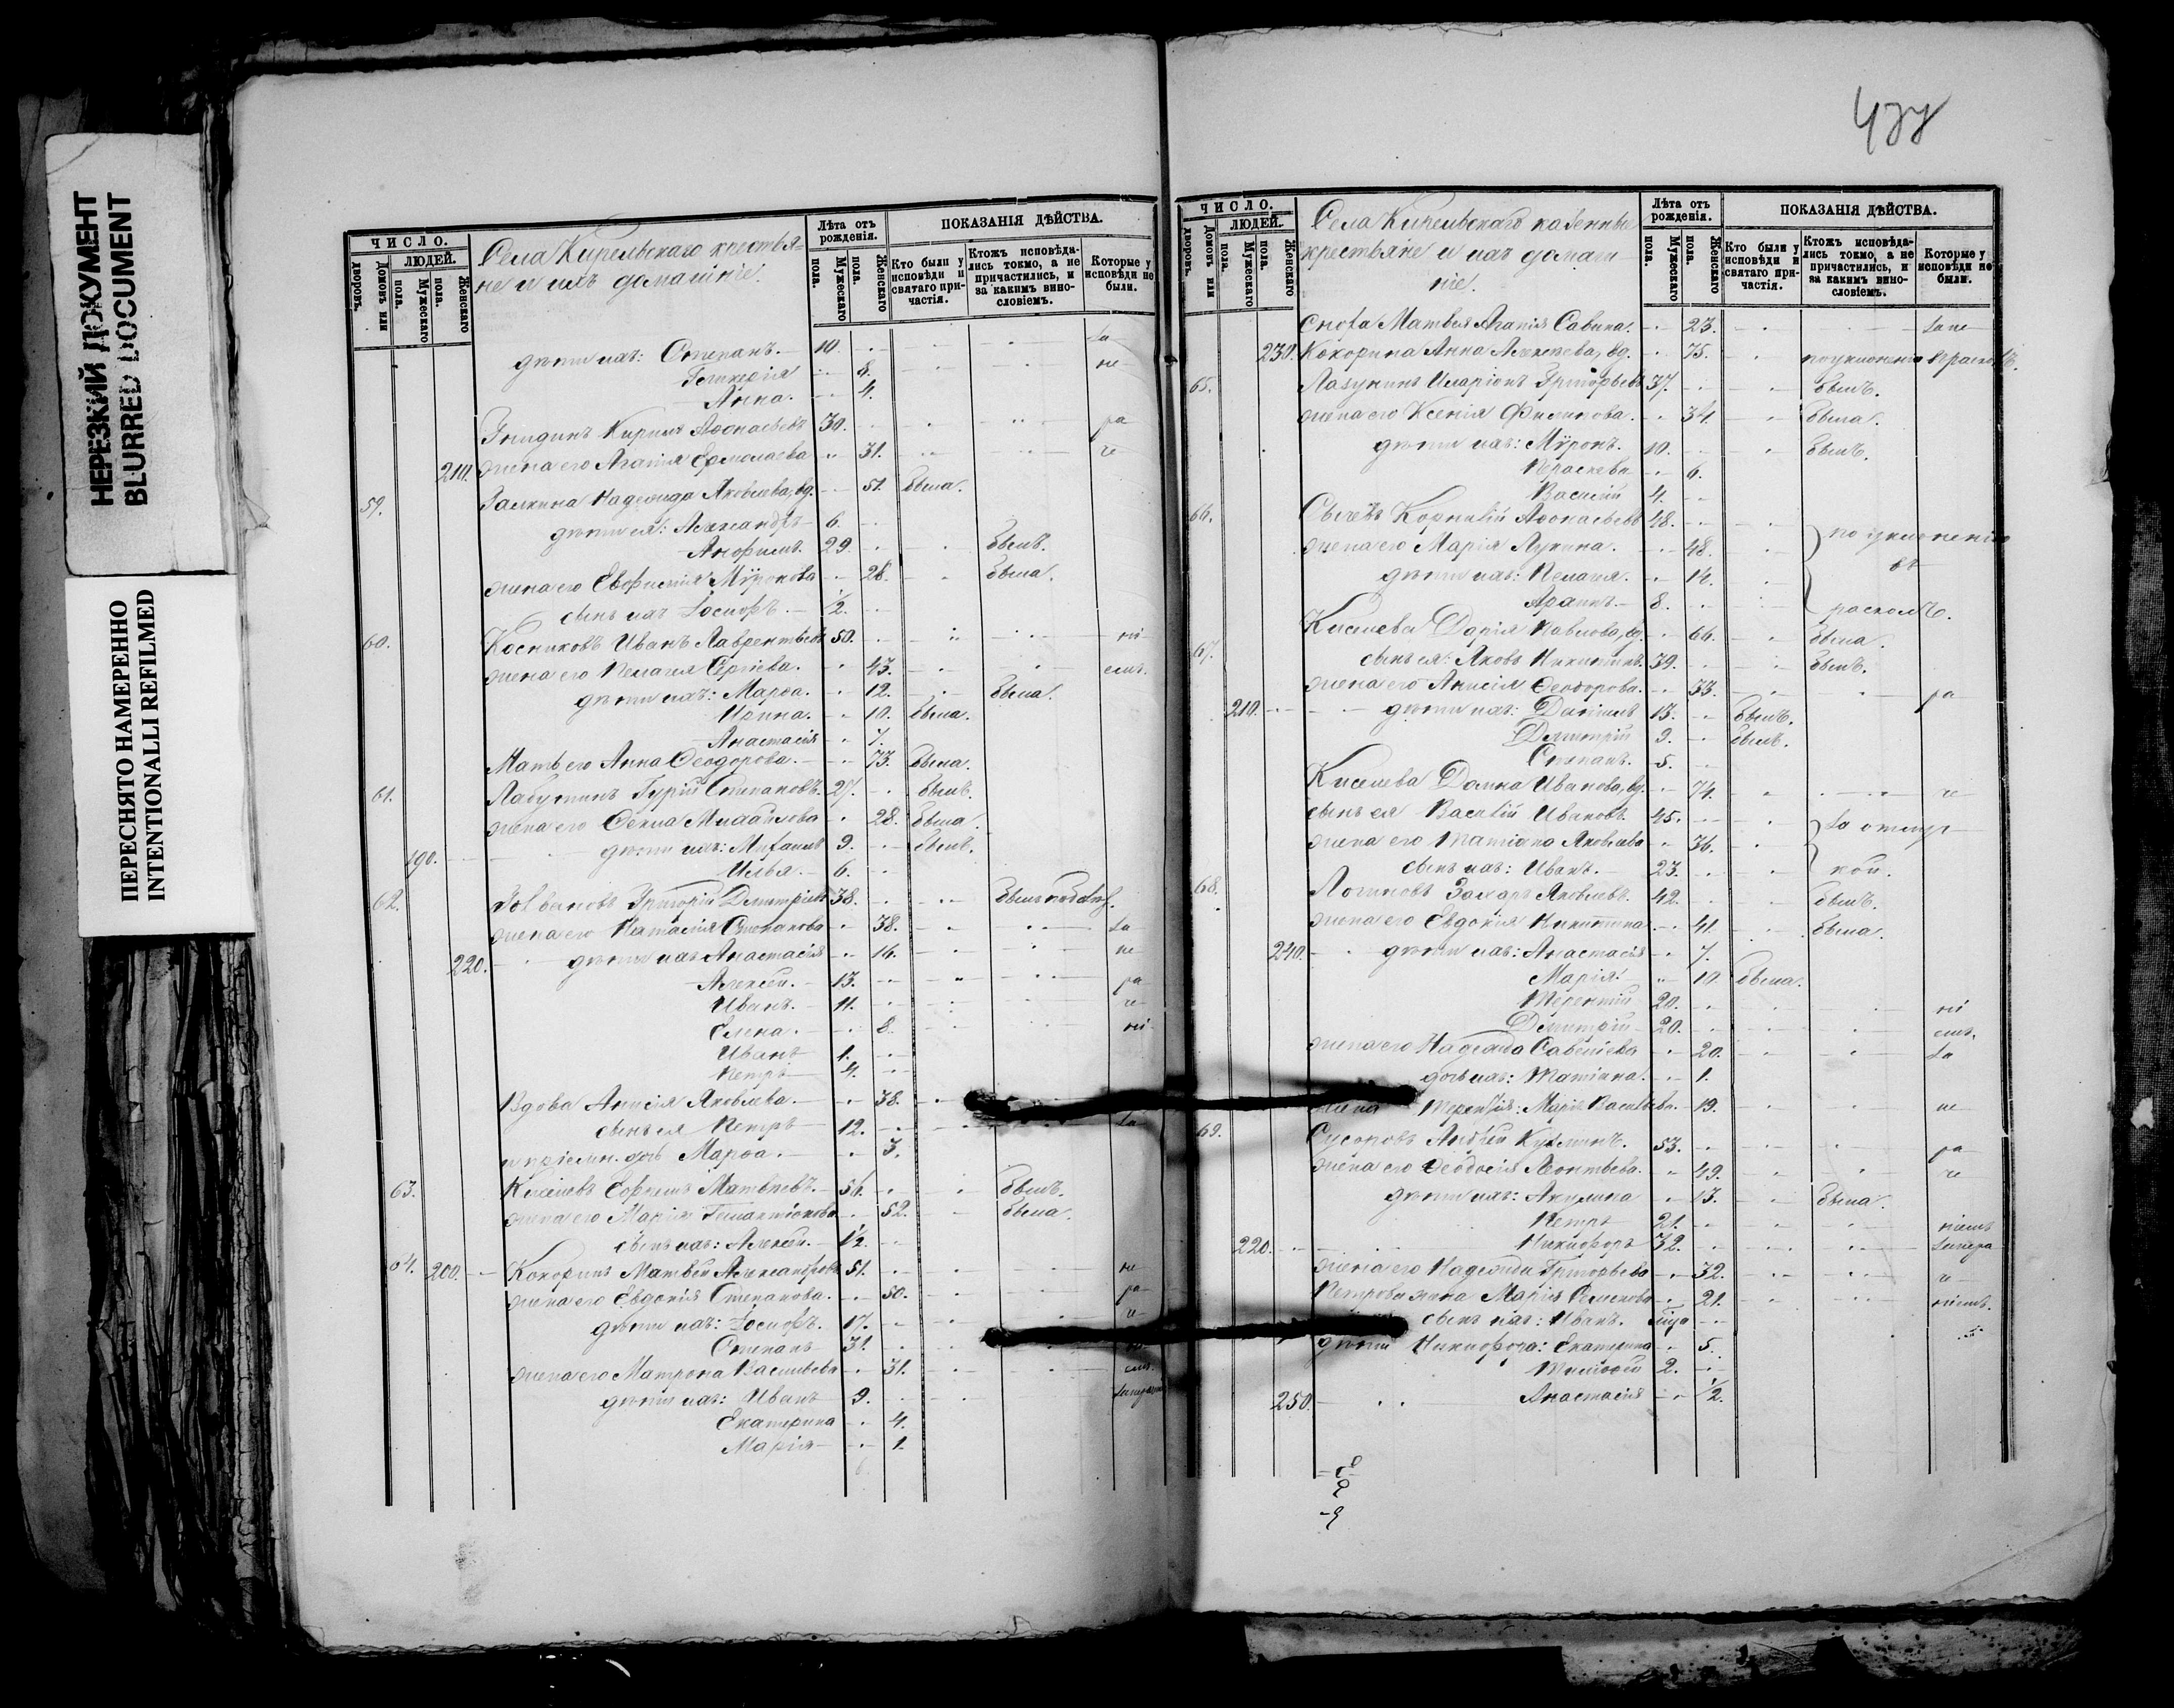 НЕРЕЗКИЙ ДОКУМЕНТ
BLURRED DOCUMENT
ПЕРЕСНЯТО НАМЕРЕННО
INTENTIONALLI REFILMED
ЧИСЛО.
ЛЮДЕЙ.
Домовъ или дворовъ.
Мужескаго пола.
Женскаго пола.
Села крестья-
не и ихъ домашніе.
Лѣта отъ рожденія.
Мужескаго пола.
Женскаго пола.
ПОКАЗАНІЯ ДѢЙСТВА.
Кто были у исповѣди и святаго при-частія.
Ктожъ исповѣда-лись токмо, а не причастились, и за какимъ вино-словіемъ.
Которые у исповѣди не были.
дѣти ихъ: Степанъ. 10. за
Гликерія 8. не
Анна. 4.
Кирилъ Аѳонасьевъ 30. ра
210. жена его Агапія Ермолаева 31. че
59. Галкина Надежда Яковлева, вд. 51. была.
дѣти ея: Александръ 6.
29. былъ.
жена его Евфимія Мѵронова 28. была.
сынъ ихъ Іосифъ. 1/2.
60. Косниковъ Иванъ Лаврентьевъ 50. ні
жена его Пелагія Сергіева. 43. емъ.
дѣти ихъ: Марѳа. 12. была.
Ирина. 10. была.
Анастасія 7.
Мать его Анна Ѳеодорова. 73. была.
61. Лабутинъ Гурій Степановъ. 27. былъ.
жена его Ѳекла Михайлова 28. была.
дѣти ихъ: Михаилъ 9. былъ.
190. Илья. 6.
62. Григорій Димитріевъ 38.
жена его Наталія Степанова 38. за
220. дѣти ихъ Анастасія 16. не
Алексѣй. 13. ра
Иванъ. 11. че
Елена. 8. ні
Иванъ 1.
Петръ 4.
Вдова Анисія Яковлева. 38.
сынъ ея Петръ 12. за
и пріемн. дочь Марѳа. 3.
63. Киселевъ Матвѣевъ. 56. былъ.
жена его Марія Галактіонова 52. была.
сынъ ихъ: Алексѣй. 1/2.
64. 200. Кокоринъ Матвѣй Александровъ 51. не
жена его Евдокія Степанова. 50. ра
дѣти ихъ: Іосифъ. 17. че
Степанъ 31.
жена его Матрона Васильева 31. емъ.
дѣти ихъ: Иванъ 9.
Екатерина 4.
Марія 1.
ЧИСЛО.
ЛЮДЕЙ.
Домовъ или дворовъ.
Мужескаго пола.
Женскаго пола.
Села казенные
крестьяне и ихъ домаш-
ніе.
Лѣта отъ рожденія.
Мужескаго пола.
Женскаго пола.
ПОКАЗАНІЯ ДѢЙСТВА.
Кто были у исповѣди и святаго при-частія.
Ктожъ исповѣда-лись токмо, а не причастились, и за какимъ вино-словіемъ.
Которые у исповѣди не были.
Сноха Матвея Агапія Савина. 23. за не
230. Кокорина Анна Алексѣева, вд. 75. по уклоненію въ расколъ.
65. Лазукинъ Иларіонъ Григорьевъ 37. былъ.
жена его Ксенія Филипова. 34. была.
дѣти ихъ: Мѵронъ. 10. былъ.
Параскева 6.
Василій 4.
66. Сычевъ Корнилій Аѳонасьевъ 48. по уклоненію
жена его Марія Лукина. 48. въ
дѣти ихъ: Пелагія. 14.
8. расколъ.
67. Киселева Дарія Павлова, вд. 66. была.
сынъ ея: Яковъ Никитинъ. 39. былъ.
жена его Анисія Ѳеодорова. 33. ра
210. дѣти ихъ: Даніилъ 13. былъ.
Димитрій 9. былъ.
Степанъ. 5.
Киселева Домна Иванова, вд. 74. че
сынъ ея Василій Ивановъ. 45. за отлуч
жена его Татіана Яковлева 36.
сынъ ихъ: Иванъ. 23. кой.
68. Логиновъ Захаръ Яковлевъ. 42. былъ.
жена его Евдокія Никитина 41. была.
240. дѣти ихъ: Анастасія 7.
Марія. 10. была.
Терентій 20. ні
Димитрій 20. емъ.
жена его Надежда Савеліева 20. за
дочь ихъ: Татіана. 1.
Терентія: Марія Васильева. 19. не
69. Андрей Кузминъ. 53. ра
жена его Ѳеодосія Леонтьева. 49. че
дѣти ихъ: Акулина 13. была.
Петръ 21. ніемъ
220. Никифоръ 32.
жена его Надежда Григорьева 32. че
Петрова жена Марія Семенова 21. ніемъ.
сынъ ихъ: Иванъ.
дѣти Никифора: Екатерина 5.
Тимоѳей 2.
250. Анастасія 1/2.